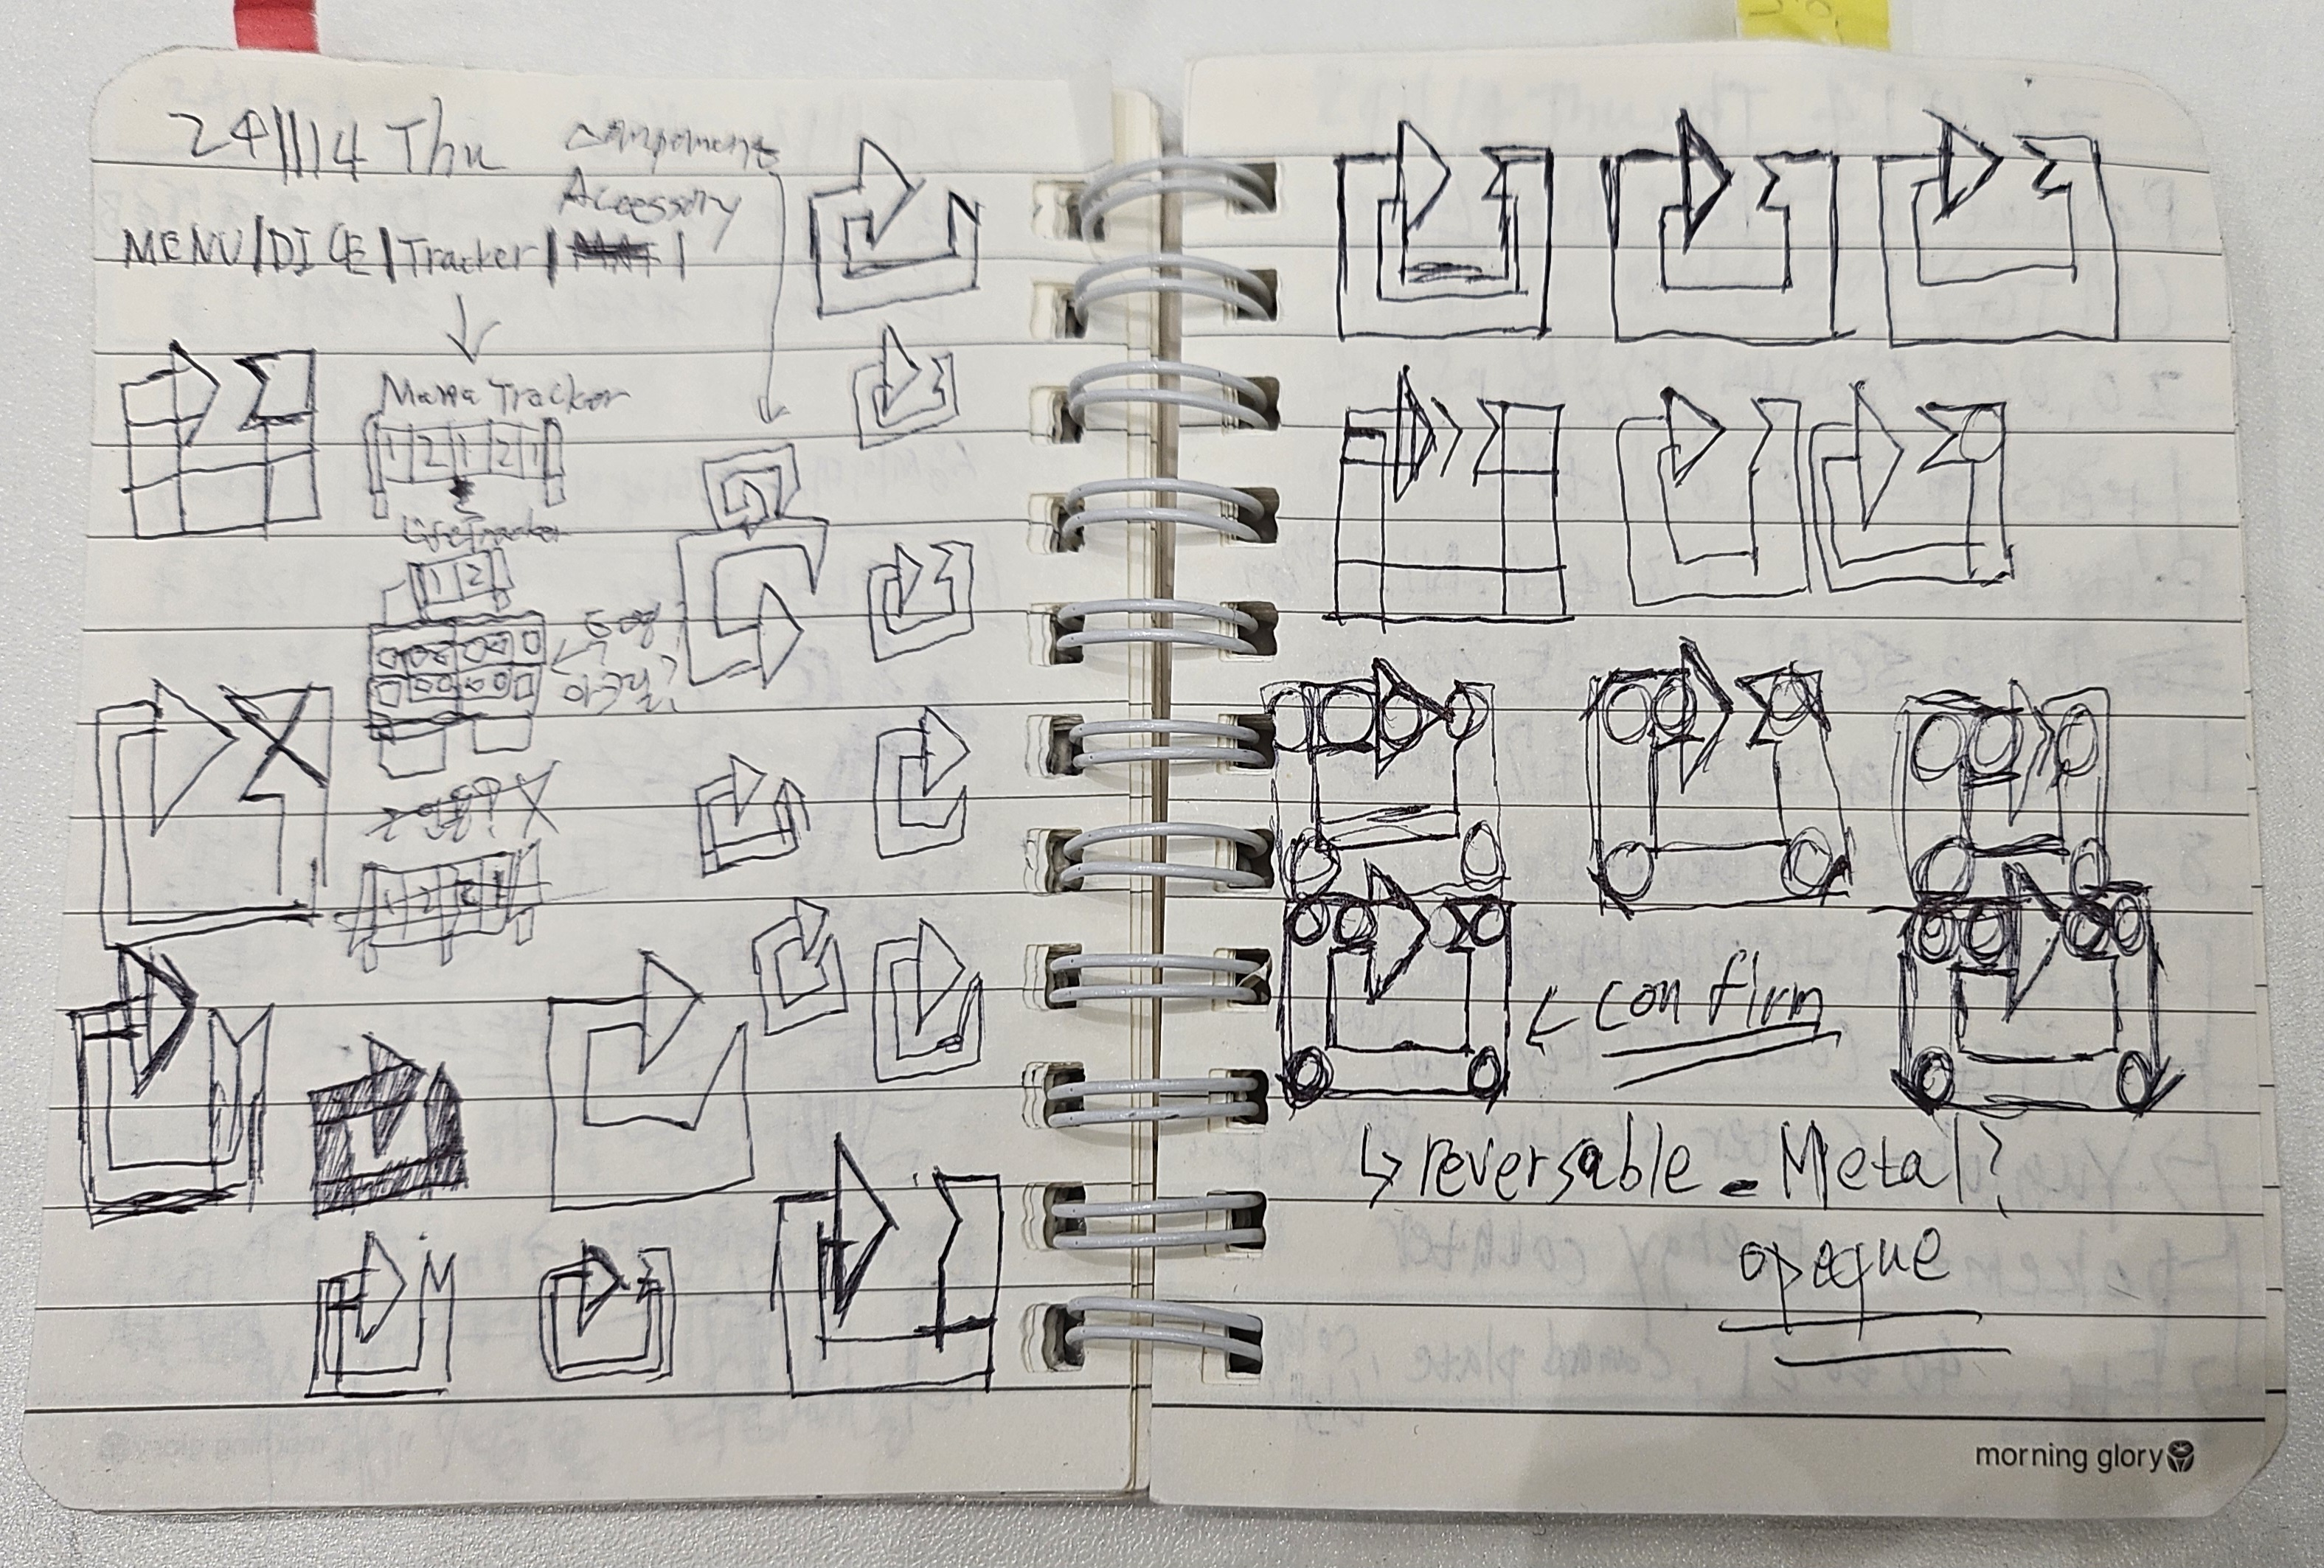 241114 Thu
Components
Accessory
MENU/DICE/Tracker/
Mana Tracker
1 2 1 2 1
Life Tracker
1 2
아크릴?
confirm
reversable - Metal?
opaque
morning glory